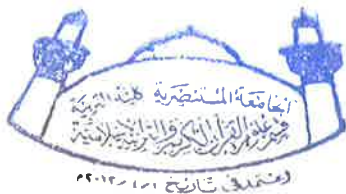 الجامعة المستنصرية كلية التربية
قسم علوم القرآن الكريم والتربية الإسلامية
اعتمد في تاريخ ٢٠١٢/٤/١م